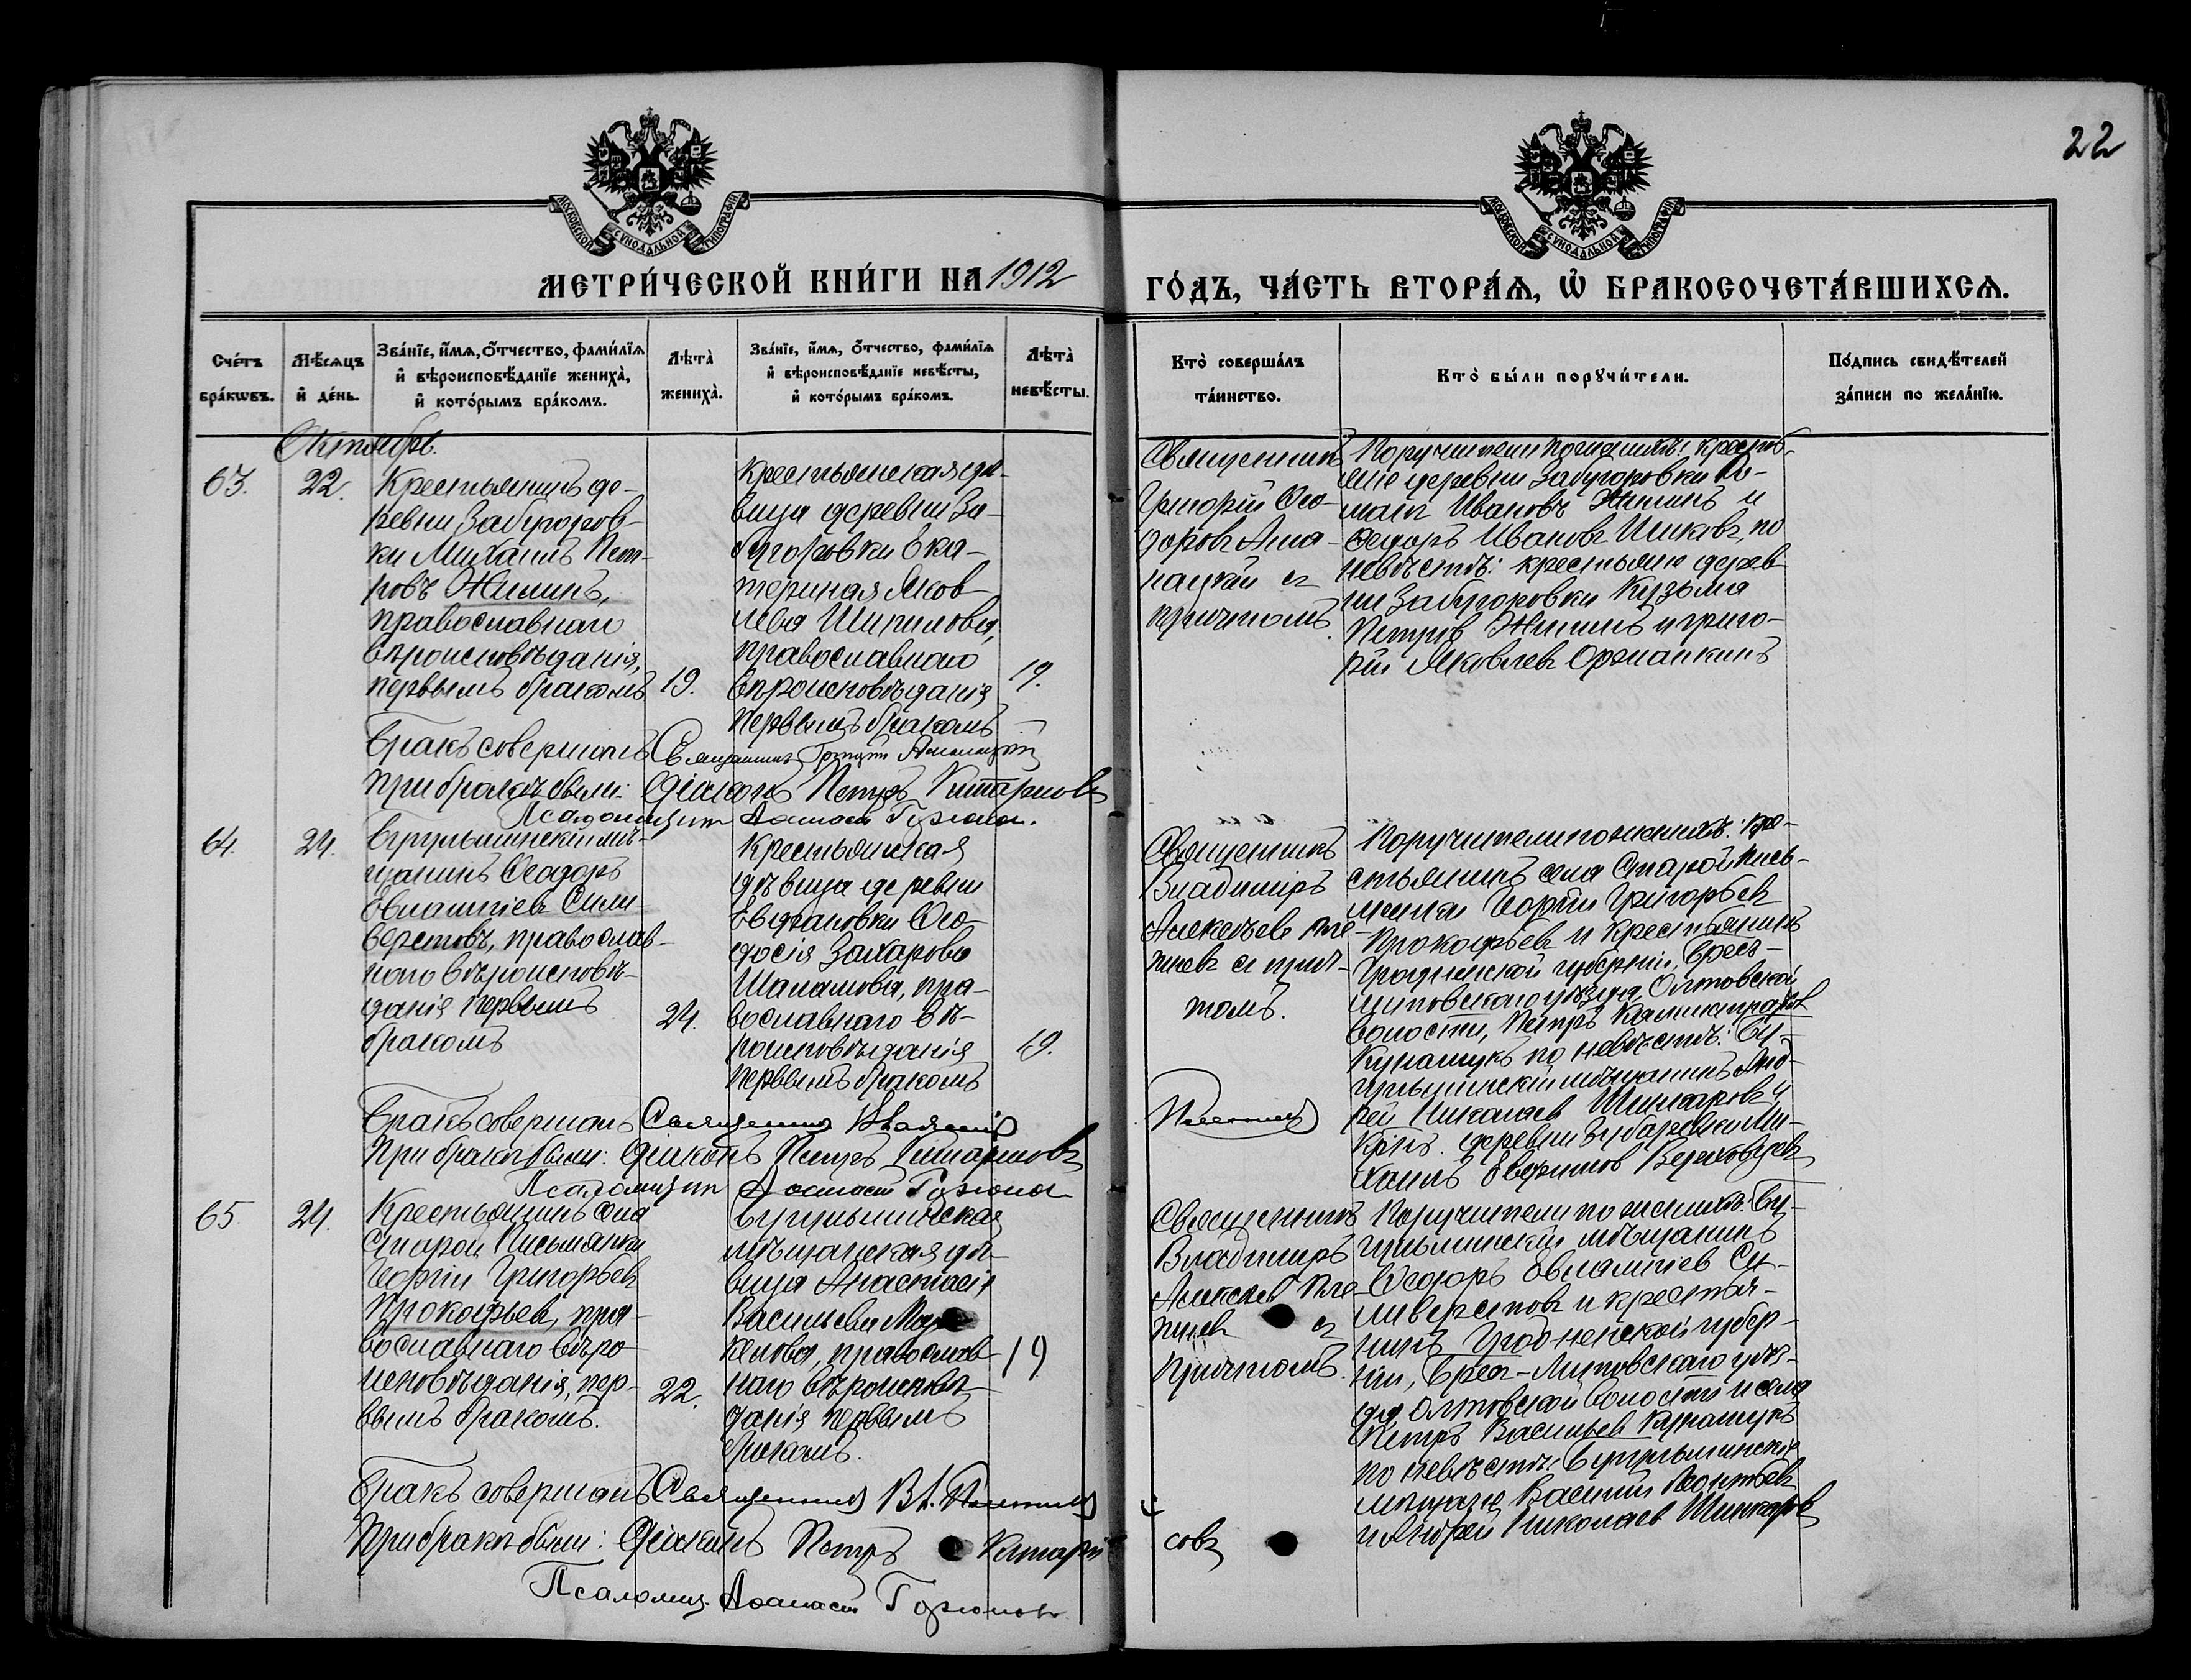 22
МОСКОВСКОЙ СѴНОДАЛЬНОЙ ТИПОГРАФІИ
МОСКОВСКОЙ СѴНОДАЛЬНОЙ ТИПОГРАФІИ
МЕТРИ́ЧЕСКОЙ КНИ́ГИ НА 1912 ГО́ДЪ, ЧА́СТЬ ВТОРА́Ѧ, Ѽ БРАКОСОЧЕТА́ВШИХСѦ.
Сче́тъ бра́кѡвъ.
Мѣ́сѧцъ и҆ де́нь.
Зва́нїе, и҆́мѧ, ѻ҆́тчество, фами́лїѧ
и҆ вѣроисповѣ́данїе жениха̀,
и҆ кото́рымъ бра́комъ.
Лѣта̀ жениха̀.
Зва́нїе, и҆́мѧ, ѻ҆́тчество, фами́лїѧ
и҆ вѣроисповѣ́данїе невѣ́сты,
и҆ кото́рымъ бра́комъ.
Лѣта̀ невѣ́сты.
Кто̀ соверша́лъ
та́инство.
Кто̀ бы́ли порꙋчи́тели.
По́дпись свидѣ́телей
за́писи по жела́нїю.
Октябрь.
63.
22.
Крестьянинъ де-
ревни Забугоров-
ки Михаилъ Пет-
ровъ Жилинъ,
православнаго
вѣроисповѣданія,
первымъ бракомъ
19.
Крестьянская дѣ-
вица деревни За-
бугоровки Ека-
терина Яков-
лева Шипилова,
православнаго
вѣроисповѣданія
первымъ бракомъ
19.
Священникъ
Григорій Ѳео-
доровъ
съ
причтомъ.
Поручители по женихѣ: кресть-
яне деревни Забугоровки Ро-
манъ Ивановъ Жилинъ и
Ѳедоръ Ивановъ Ишковъ, по
невѣстѣ: крестьяне дерев-
ни Забугоровки Кузьма
Петровъ Жилинъ и Григо-
рій Яковлевъ
Бракъ совершалъ Священникъ Григорій
При бракѣ были: Діаконъ Петръ
Псаломщикъ Аѳанасій
64.
24.
Бугульминскій мѣ-
щанинъ Ѳеодоръ
Евлампіевъ Сили-
верстовъ, православ-
наго вѣроисповѣ-
данія первымъ
бракомъ
24.
Крестьянская
дѣвица деревни
Евдоловки Ѳео-
досія Захарова
Шаламова, пра-
вославнаго вѣ-
роисповѣданія
первымъ бракомъ
19.
Священникъ
Владиміръ
Алексѣевъ
съ прич-
томъ.
Поручители по женихѣ: кре-
стьянинъ села Старой Пись-
мянки Георгій Григорьевъ
Прокофьевъ и крестьянинъ
Гродненской губерніи, Брест-
литовскаго уѣзда,
волости, Петръ
по невѣстѣ: Бу-
гульминскій мѣщанинъ Анд-
рей Николаевъ Шинкаровъ и
крест. деревни Зубаревки Ми-
хаилъ
Бракъ совершалъ Священникъ Владиміръ
При бракѣ были: Діаконъ Петръ
Псаломщикъ Аѳанасій
65.
24.
Крестьянинъ села
Старой Письмянки
Георгій Григорьевъ
Прокофьевъ, пра-
вославнаго вѣро-
исповѣданія, пер-
вымъ бракомъ.
22.
Бугульминская
мѣщанская дѣ-
вица Анастасія
Васильева
православ-
наго вѣроисповѣ-
данія первымъ
бракомъ.
19
Священникъ
Владиміръ
Алексѣевъ
съ
причтомъ.
Поручители по женихѣ: Бу-
гульминскій мѣщанинъ
Ѳеодоръ Евлампіевъ Си-
ливерстовъ и крестья-
нинъ Гродненской губер-
ніи, Брест-Литовскаго уѣз-
да, волости и села
Петръ Васильевъ
по невѣстѣ: Бугульминскіе
мѣщане Василій Леонтьевъ
и Андрей Николаевъ Шинкаровъ
Бракъ совершалъ Священникъ Вл.
При бракѣ были: Діаконъ Петръ
Псаломщ. Аѳанасій